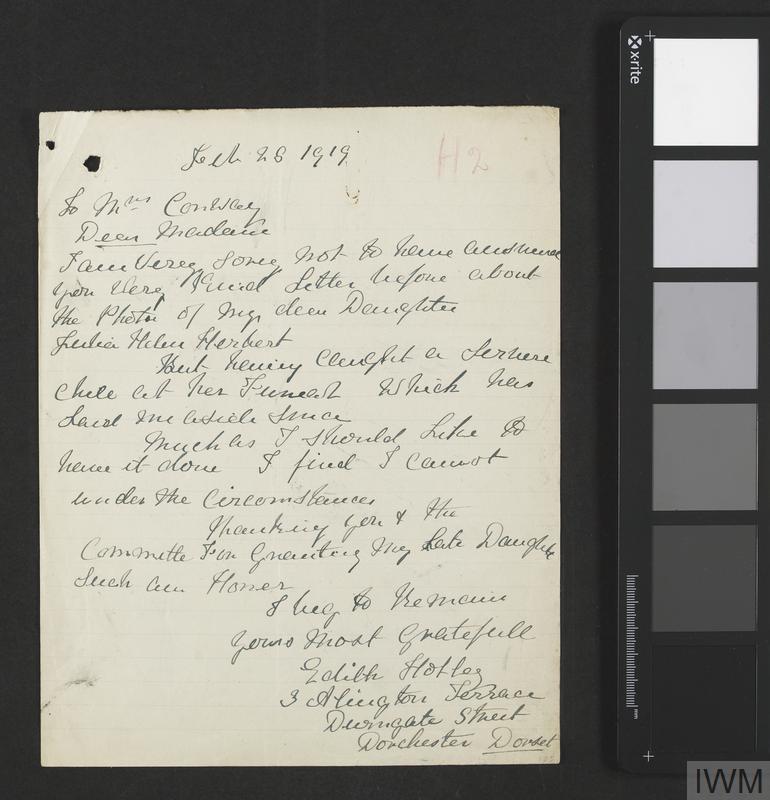 Feb 28 1919
H2
To Mrs Conway
Dear Madam
I am Verey Sorrey not to have answerd
you Verey Kind Letter before about
the Photo of my dear Daughter
Julia Helen Herbert
But having Caught a Servere
Chill at her Funeral Which has
Laid me aside Since
Much as I should Like to
have it done I find I cannot
under the Circomstances
Thanking you & the
Committe For Granting My Late Daughter
Such an Honer
I beg to Remain
yours Most Gratefull
Edith
3 Alington Terrace
Durngate Street
Dorchester Dorset
x-rite
mm
IWM